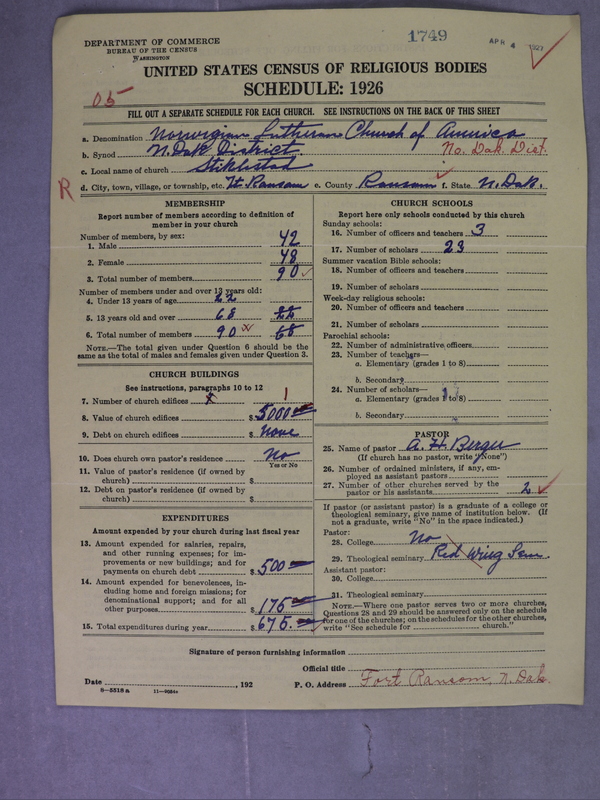 1749
APR 4 1927
DEPARTMENT OF COMMERCE
BUREAU OF THE CENSUS
WASHINGTON
UNITED STATES CENSUS OF RELIGIOUS BODIES
SCHEDULE: 1926
05
FILL OUT A SEPARATE SCHEDULE FOR EACH CHURCH. SEE INSTRUCTIONS ON THE BACK OF THIS SHEET
a. Denomination Norwegian Lutheran Church of America
b. Synod N. Dak District. No. Dak. Dist.
c. Local name of church Stiklestad
R
d. City, town, village, or township, etc. Ft. Ransom e. County Ransom f. State N. Dak.
MEMBERSHIP
Report number of members according to definition of member in your church
Number of members, by sex:
1. Male 42
2. Female 48
3. Total number of members 90
Number of members under and over 13 years old:
4. Under 13 years of age 22
5. 13 years old and over 68
6. Total number of members 90 68
NOTE.—The total given under Question 6 should be the same as the total of males and females given under Question 3.
CHURCH BUILDINGS
See instructions, paragraphs 10 to 12
7. Number of church edifices 1
8. Value of church edifices $ 5000
9. Debt on church edifices $ None
10. Does church own pastor's residence No
Yes or No
11. Value of pastor's residence (if owned by church) $
12. Debt on pastor's residence (if owned by church) $
EXPENDITURES
Amount expended by your church during last fiscal year
13. Amount expended for salaries, repairs, and other running expenses; for improvements or new buildings; and for payments on church debt $ 500
14. Amount expended for benevolences, including home and foreign missions; for denominational support; and for all other purposes $ 175
15. Total expenditures during year $ 675.
CHURCH SCHOOLS
Report here only schools conducted by this church
Sunday schools:
16. Number of officers and teachers 3
17. Number of scholars 23
Summer vacation Bible schools:
18. Number of officers and teachers
19. Number of scholars
Week-day religious schools:
20. Number of officers and teachers
21. Number of scholars
Parochial schools:
22. Number of administrative officers
23. Number of teachers—
a. Elementary (grades 1 to 8)
b. Secondary
24. Number of scholars—
a. Elementary (grades 1 to 8)
b. Secondary
PASTOR
25. Name of pastor A. H. Berger
(If church has no pastor, write "None")
26. Number of ordained ministers, if any, employed as assistant pastors
27. Number of other churches served by the pastor or his assistants 2
If pastor (or assistant pastor) is a graduate of a college or theological seminary, give name of institution below. (If not a graduate, write "No" in the space indicated.)
Pastor:
28. College No
29. Theological seminary Red Wing Sem.
Assistant pastor:
30. College
31. Theological seminary
NOTE.—Where one pastor serves two or more churches, Questions 28 and 29 should be answered only on the schedule for one of the churches; on the schedules for the other churches, write "See schedule for church."
Signature of person furnishing information
Official title
Date , 192
P. O. Address Fort Ransom, N. Dak.
8—5518 a